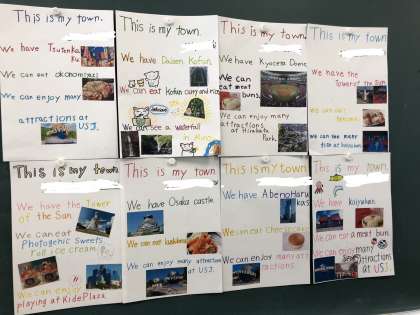 This is my town.
We have Tsutenka
ku
We can eat okonomiyaki
We can enjoy many
attractions at
USJ.
This is my town.
We have Daisen Kofun.
We can eat Kofun curry and rice
We can see a waterfall
This is my town.
We have Kyocera Dome
We can
eat meat
buns.
We can enjoy many
attractions at Hirakata
Park.
This is my town.
We have the
Tower of the Sun
We can eat
We can see many
This is my town.
We have the Tower
of the Sun.
We can eat
Photogenic Sweets,
roll ice cream.
We can enjoy
playing at Kids Plaza
This is my town.
We have Osaka castle.
We can eat kushikatsu
We can enjoy many attractions
at USJ.
This is my town
We have Abeno Haru
kas
We can eat cheesecake
We can enjoy many att
ractions.
This is my town.
We have kaiyukan.
We can
eat a meat bun.
We can
enjoy many
attractions
at USJ.